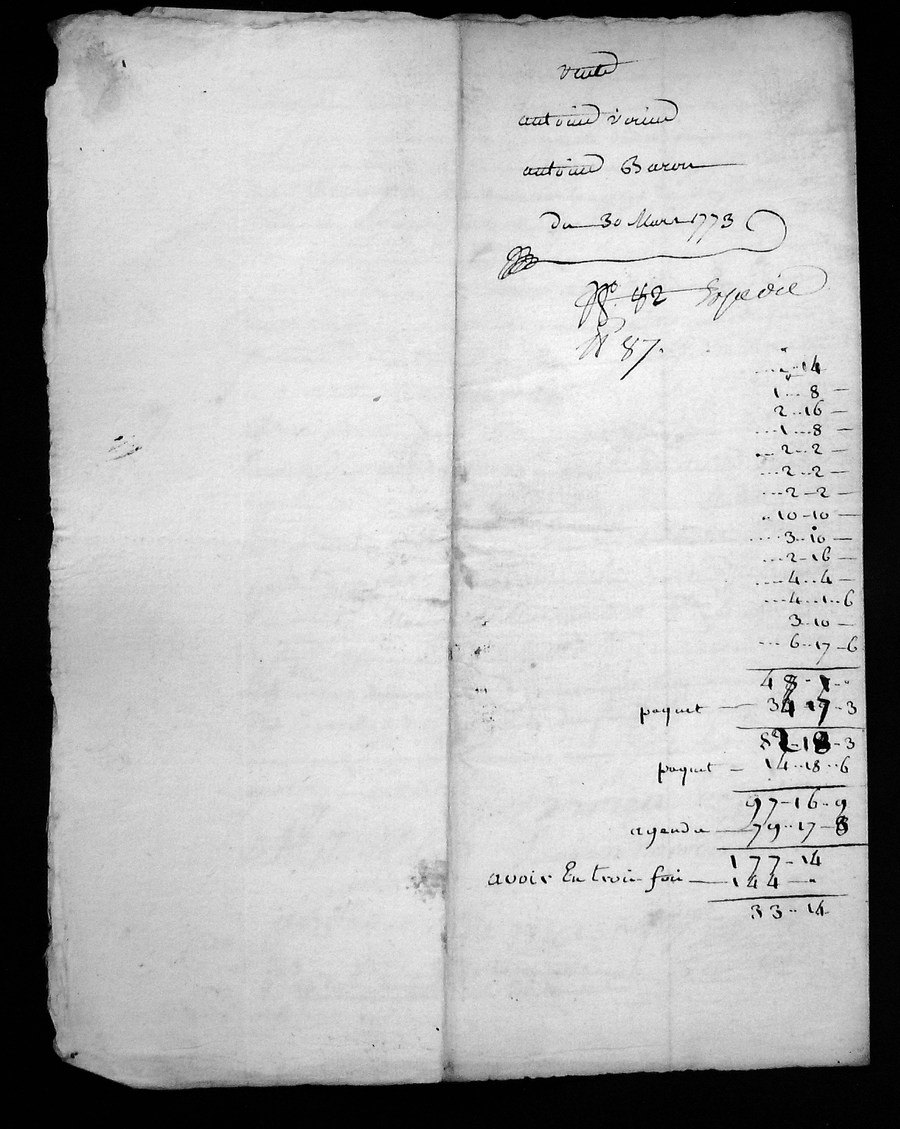 Vente
antoine Verine
antoine Baron
Du 30 Mars 1773
82 Expedié
N 87.
14
1 - 8 -
2 - 16 -
1 - 8 -
2 - 2 -
2 - 2 -
2 - 2 -
10 - 10 -
3 - 10 -
2 - 16 -
4 - 4 -
4 - 1 - 6
3 - 10 -
6 - 17 - 6
48 - 1 -
paquet - 34 - 17 - 3
82 - 18 - 3
paquet - 14 - 18 - 6
97 - 16 - 9
agenda - 79 - 17 - 8
177 - 14
avoir En trois fois - 144 -
33 - 14